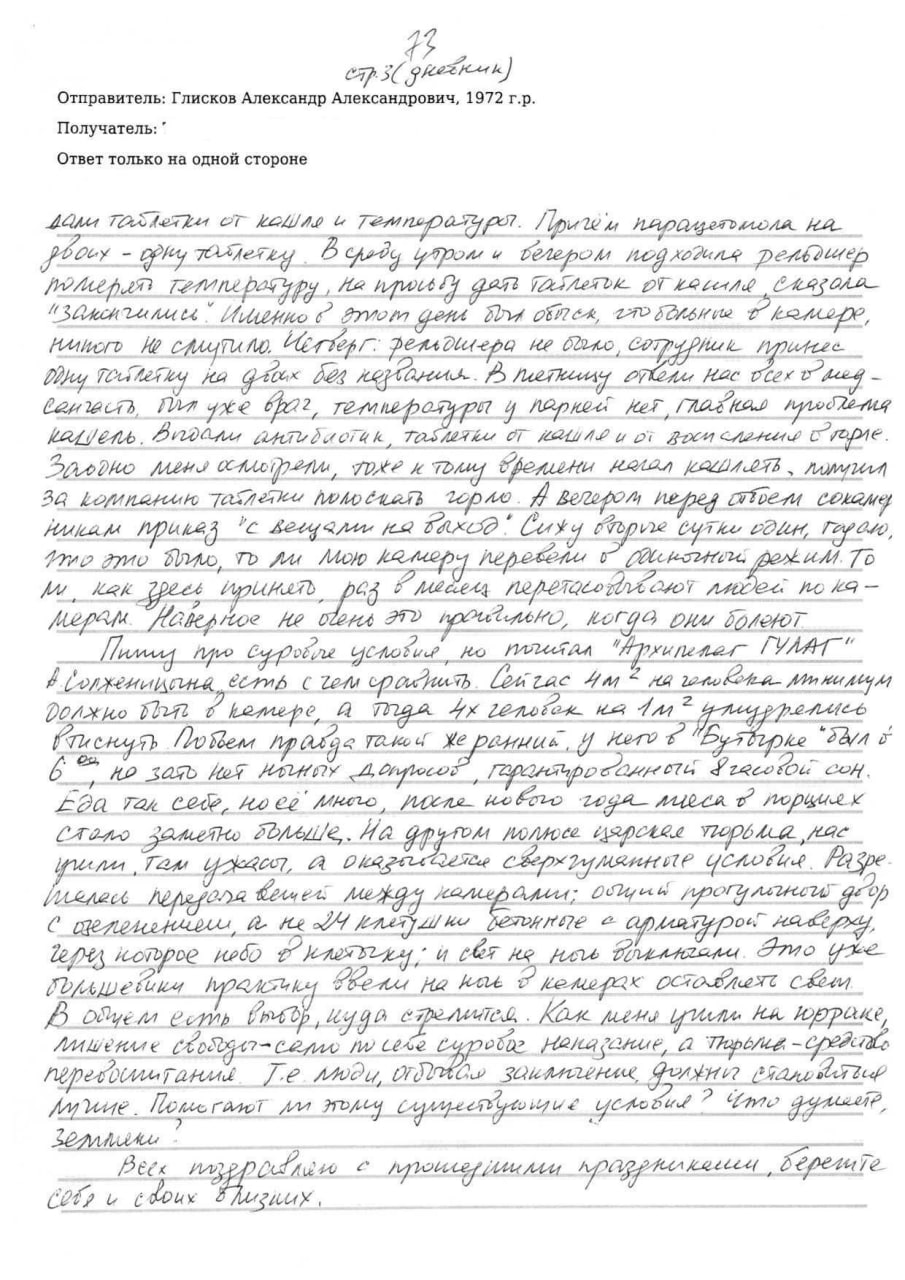 73
стр.3 (дневник)
Отправитель: Глисков Александр Александрович, 1972 г.р.
Получатель:
Ответ только на одной стороне
дали таблетки от кашля и температуры. Причём парацетомола на
двоих – одну таблетку. В среду утром и вечером подходила фельдшер
померять температуру, на просьбу дать таблеток от кашля, сказала
"закончились". Именно в этот день был обыск, что больные в камере,
никого не смутило. Четверг: фельдшера не было, сотрудник принес
одну таблетку на двоих без названия. В пятницу отвели нас всех в мед-
санчасть, был уже врач, температуры у парней нет, главная проблема
кашель. Выдали антибиотик, таблетки от кашля и от воспаления в горле.
Заодно меня осмотрели, тоже к тому времени начал кашлять, получил
за компанию таблетки полоскать горло. А вечером перед отбоем сокамер
никам приказ "с вещами на выход". Сижу вторые сутки один, гадаю,
что это было, то ли мою камеру перевели в одиночный режим. То
ли, как здесь принято, раз в месяц перетасовывают людей по ка-
мерам. Наверное не очень это правильно, когда они болеют.
Пишу про суровые условия, но почитал "Архипелаг ГУЛАГ"
А Солженицына, есть с чем сравнить. Сейчас 4м² на человека минимум
должно быть в камере, а тогда 4х человек на 1м² умудрялись
втиснуть. Подъем правда такой же ранний, у него в "Бутырке" был в
6⁰⁰, но зато нет ночных допросов, гарантированный 8 часовой сон.
Еда так себе, но её много, после нового года мяса в порциях
стало заметно больше. На другом полюсе царская тюрьма, нас
учили, там ужасы, а оказывается сверхгуманные условия. Разре-
шалась передача вещей между камерами; общий прогулочный двор
с озеленением, а не 24 клетушки бетонные с арматурой наверху,
через которое небо в клеточку; и свет на ночь выключали. Это уже
большевики практику ввели на ночь в камерах оставлять свет.
В общем есть выбор, куда стремится. Как меня учили на юрфаке,
лишение свободы – само по себе суровое наказание, а тюрьма – средство
перевоспитания. Т.е. люди, отбывая заключение, должны становиться
лучше. Помогают ли этому существующие условия? Что думаете,
земляки?
Всех поздравляю с прошедшими праздниками, берегите
себя и своих близких.